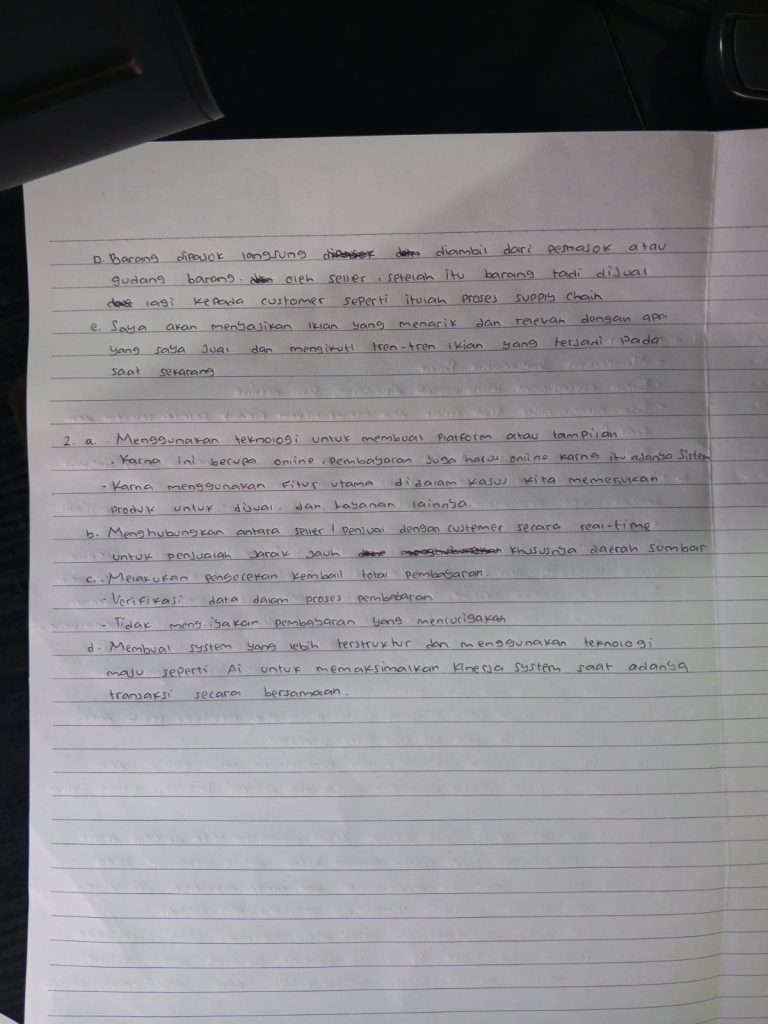 D. Barang dipasok langsung diambil dari pemasok atau
gudang barang. oleh seller, setelah itu barang tadi dijual
lagi kepada customer seperti itulah proses supply chain
e. Saya akan menyajikan iklan yang menarik dan relevan dengan apa
yang saya jual dan mengikuti tren-tren iklan yang terjadi pada
saat sekarang
2. a. - Menggunakan teknologi untuk membuat platform atau tampilan
- Karna ini berupa online, pembayaran juga harus online karna itu adanya sistem
- Karna menggunakan fitur utama didalam kasus kita memerlukan
produk untuk dijual. dan layanan lainnya.
b. Menghubungkan antara seller / penjual dengan customer secara real-time
untuk penjualan jarak jauh khususnya daerah sumbar
c. - Melakukan pengecekan kembali total pembayaran
- Verifikasi data dalam proses pembayaran
- Tidak meng-iyakan pembayaran yang mencurigakan
d. Membuat system yang lebih terstruktur dan menggunakan teknologi
maju seperti Ai untuk memaksimalkan kinerja system saat adanya
transaksi secara bersamaan.